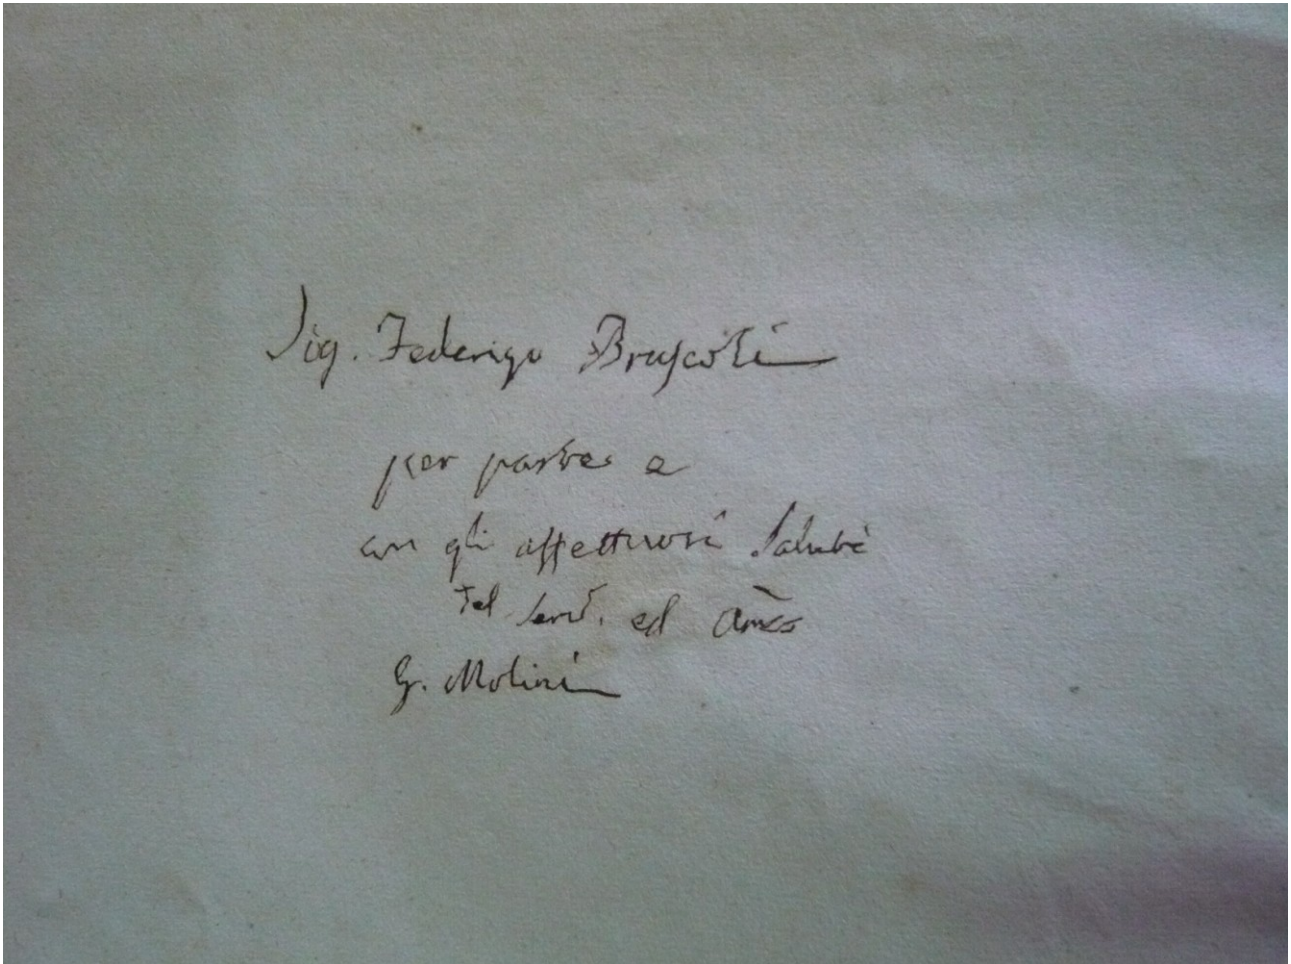 Sig. Federigo Bruscoli
per parte e
con gli affettuosi saluti
del serv. ed amco
G. Molini